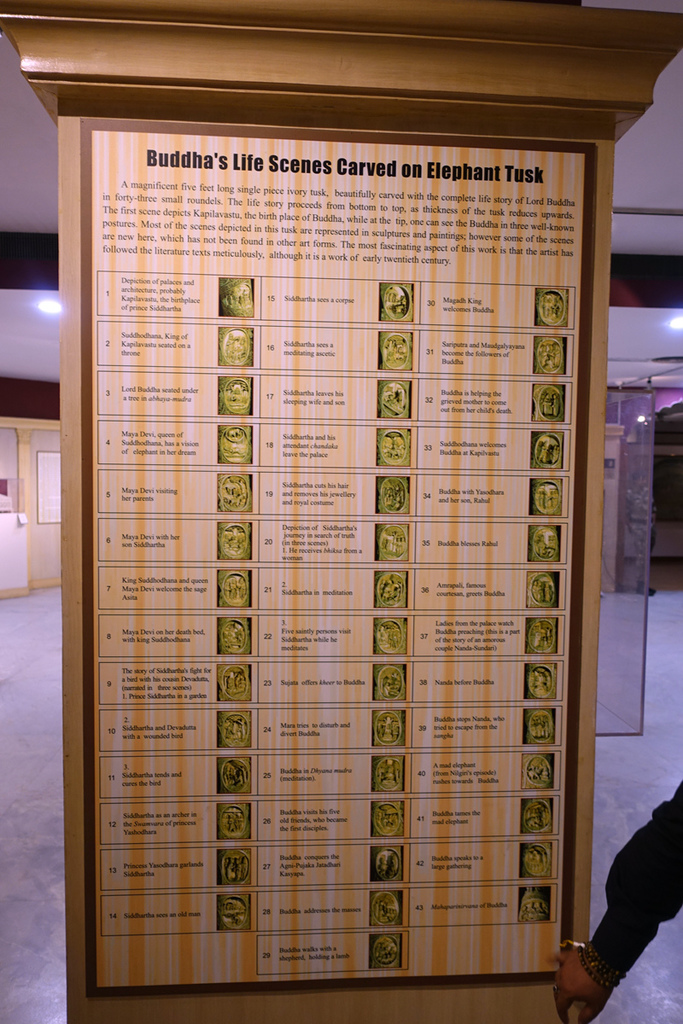 Buddha's Life Scenes Carved on Elephant Tusk
A magnificent five feet long single piece ivory tusk, beautifully carved with the complete life story of Lord Buddha
in forty-three small roundels. The life story proceeds from bottom to top, as thickness of the tusk reduces upwards.
The first scene depicts Kapilavastu, the birth place of Buddha, while at the tip, one can see the Buddha in three well-known
postures. Most of the scenes depicted in this tusk are represented in sculptures and paintings; however some of the scenes
are new here, which has not been found in other art forms. The most fascinating aspect of this work is that the artist has
followed the literature texts meticulously, although it is a work of early twentieth century.
1
Depiction of palaces and
architecture, probably
Kapilavastu, the birthplace
of prince Siddhartha
2
Suddhodhana, King of
Kapilavastu seated on a
throne
3
Lord Buddha seated under
a tree in abhaya-mudra
4
Maya Devi, queen of
Suddhodhana, has a vision
of elephant in her dream
5
Maya Devi visiting
her parents
6
Maya Devi with her
son Siddhartha
7
King Suddhodhana and queen
Maya Devi welcome the sage
Asita
8
Maya Devi on her death bed,
with king Suddhodhana
9
The story of Siddhartha's fight for
a bird with his cousin Devadutta,
(narrated in three scenes)
1. Prince Siddhartha in a garden
10
2.
Siddhartha and Devadutta
with a wounded bird
11
3.
Siddhartha tends and
cures the bird
12
Siddhartha as an archer in
the Swamvara of princess
Yashodhara
13
Princess Yasodhara garlands
Siddhartha
14
Siddhartha sees an old man
15
Siddhartha sees a corpse
16
Siddhartha sees a
meditating ascetic
17
Siddhartha leaves his
sleeping wife and son
18
Siddhartha and his
attendant chandaka
leave the palace
19
Siddhartha cuts his hair
and removes his jewellery
and royal costume
20
Depiction of Siddhartha's
journey in search of truth
(in three scenes)
1. He receives bhiksa from a
woman
21
2.
Siddhartha in meditation
22
3.
Five saintly persons visit
Siddhartha while he
meditates
23
Sujata offers kheer to Buddha
24
Mara tries to disturb and
divert Buddha
25
Buddha in Dhyana mudra
(meditation).
26
Buddha visits his five
old friends, who became
the first disciples.
27
Buddha conquers the
Agni-Pujaka Jatadhari
Kasyapa.
28
Buddha addresses the masses
29
Buddha walks with a
shepherd, holding a lamb
30
Magadh King
welcomes Buddha
31
Sariputra and Maudgalyayana
become the followers of
Buddha
32
Buddha is helping the
grieved mother to come
out from her child's death.
33
Suddhodhana welcomes
Buddha at Kapilvastu
34
Buddha with Yasodhara
and her son, Rahul
35
Buddha blesses Rahul
36
Amrapali, famous
courtesan, greets Buddha
37
Ladies from the palace watch
Buddha preaching (this is a part
of the story of an amorous
couple Nanda-Sundari)
38
Nanda before Buddha
39
Buddha stops Nanda, who
tried to escape from the
sangha
40
A mad elephant
(from Nilgiri's episode)
rushes towards Buddha
41
Buddha tames the
mad elephant
42
Buddha speaks to a
large gathering
43
Mahaparinirvana of Buddha